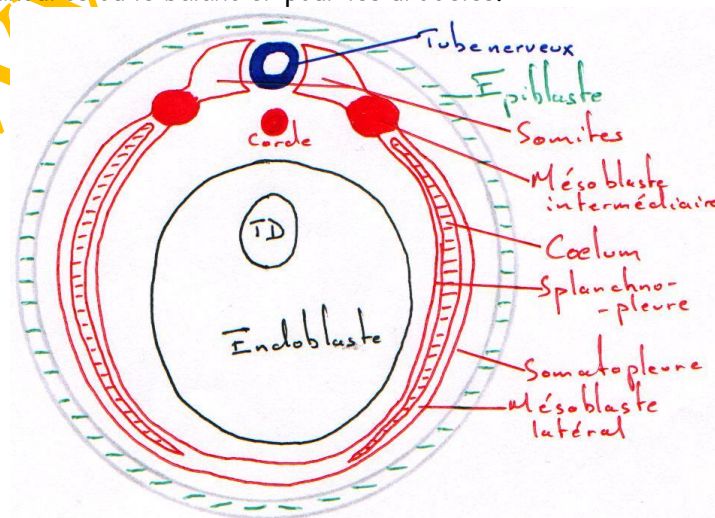 Tube nerveux
Epiblaste
Somites
Corde
Mésoblaste
intermédiaire
TD
Cœlum
Splanchno-
-pleure
Endoblaste
Somatopleure
Mésoblaste
latéral